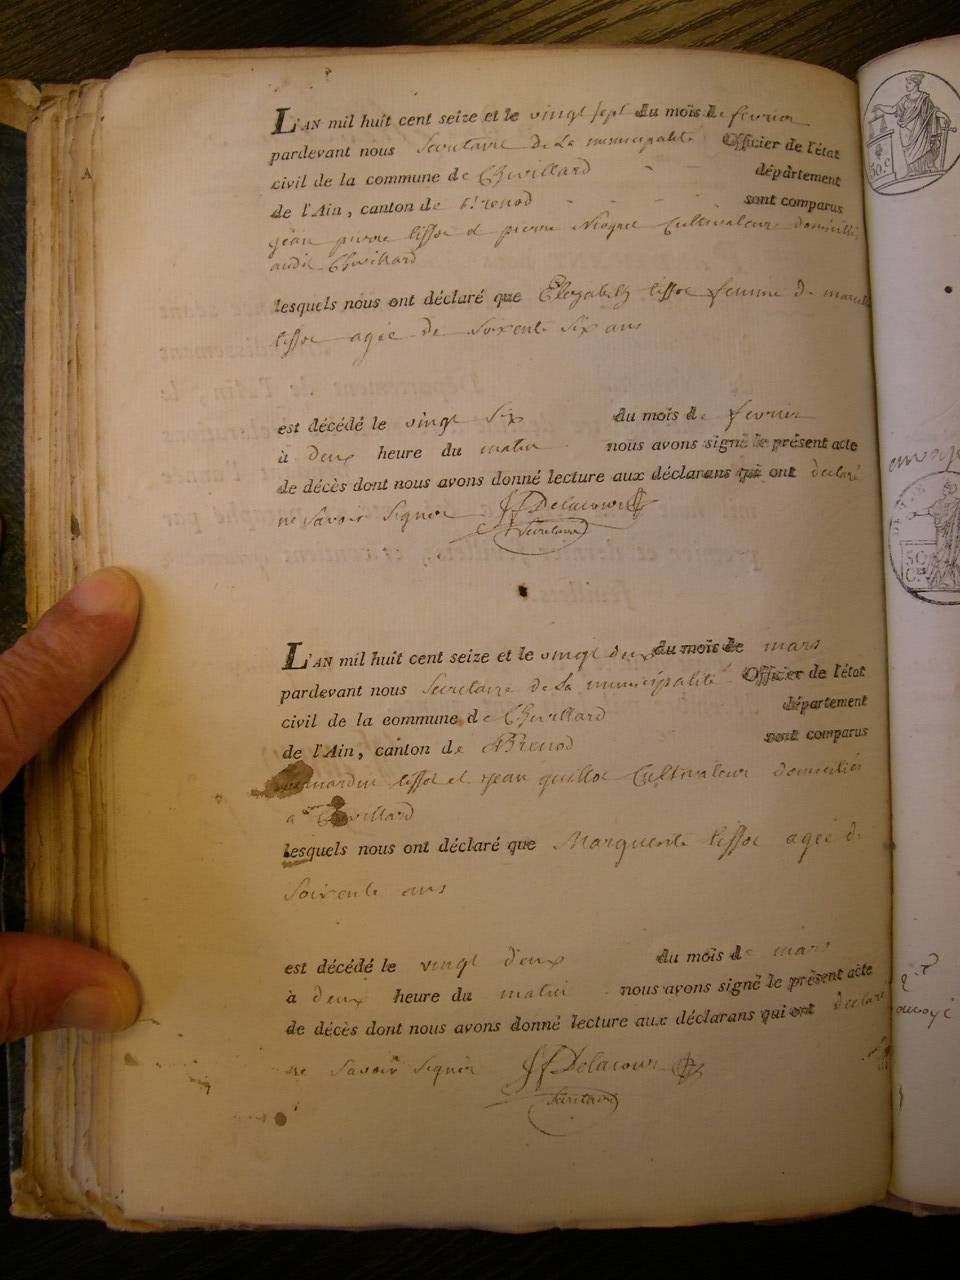 L'AN mil huit cent seize et le vingt sept du mois de fevrier
pardevant nous Secretaire de La municipalité Officier de l'état
civil de la commune de Chevillard département
de l'Ain, canton de Brenod sont comparus
jean pierre lissoc et pierre Cultivateurs domiciliés
audit Chevillard
lesquels nous ont déclaré que Elezabeth lissoc femme de
lissoc agée de Soixente Six ans
est décédé le vingt Six du mois de fevrier
à deux heure du matin nous avons signé le présent acte
de décès dont nous avons donné lecture aux déclarans qui ont declaré
ne Savoir Signer JfDelacour
Secretaire
L'AN mil huit cent seize et le vingt deux du mois de mars
pardevant nous Secretaire de La municipalité Officier de l'état
civil de la commune de Chevillard département
de l'Ain, canton de Brenod sont comparus
lissoc et jean guilloc Cultivateur domiciliés
a Chevillard
lesquels nous ont déclaré que Marguerite lissoc agée de
Soixente ans
est décédé le vingt deux du mois de mars
à deux heure du matin nous avons signé le présent acte
de décès dont nous avons donné lecture aux déclarans qui ont declaré
ne Savoir Signer JfDelacour
Secretaire
A
50.c
50
C.es